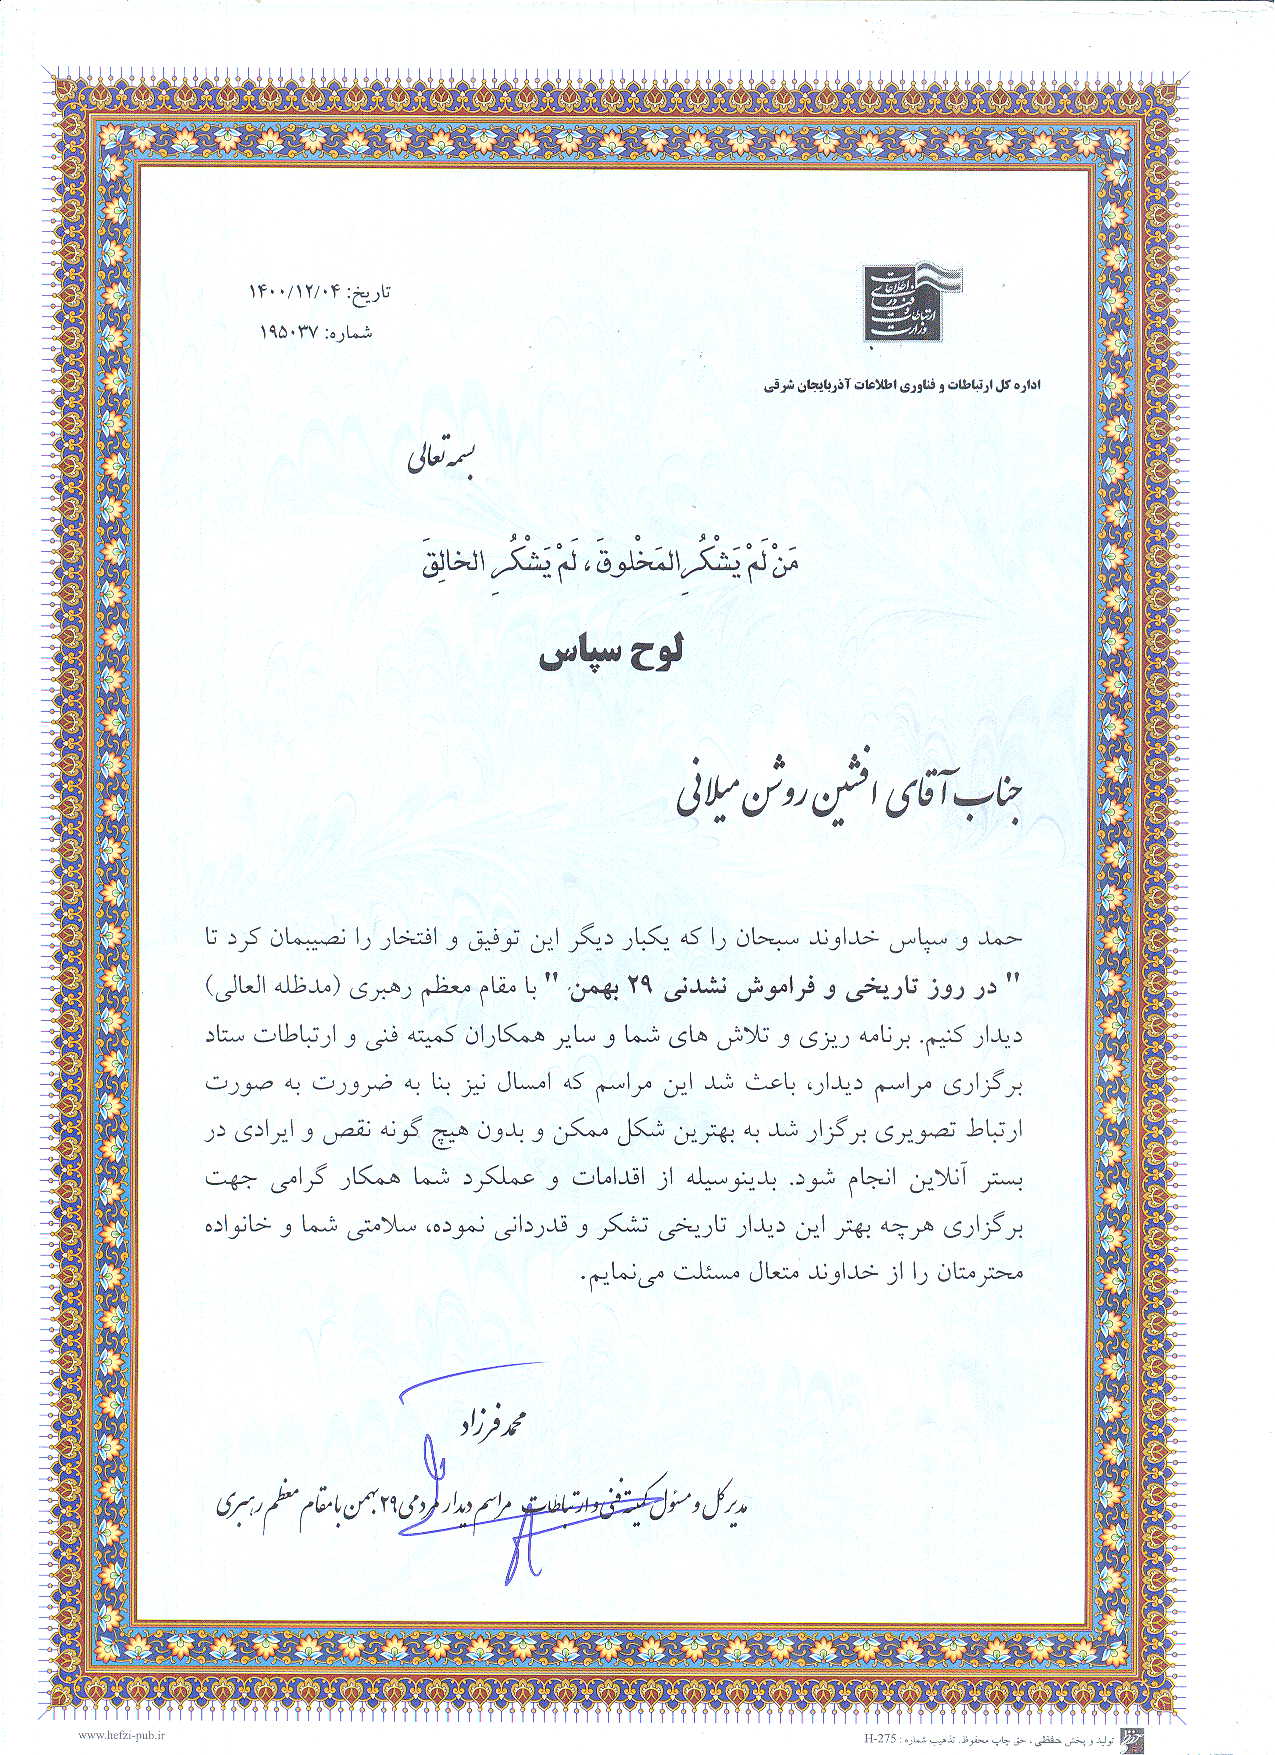 وزارت ارتباطات و فن‌آوری اطلاعات
تاریخ: ۱۴۰۰/۱۲/۰۴
شماره: ۱۹۵۰۳۷
اداره کل ارتباطات و فناوری اطلاعات آذربایجان شرقی
بسمه تعالی
مَنْ لَمْ يَشْكُرِ المَخْلوقَ، لَمْ يَشْكُرِ الخالِقَ
لوح سپاس
جناب آقای افشین روشن میلانی
حمد و سپاس خداوند سبحان را که یکبار دیگر این توفیق و افتخار را نصیبمان کرد تا
" در روز تاریخی و فراموش نشدنی ۲۹ بهمن " با مقام معظم رهبری (مدظله العالی)
دیدار کنیم. برنامه ریزی و تلاش های شما و سایر همکاران کمیته فنی و ارتباطات ستاد
برگزاری مراسم دیدار، باعث شد این مراسم که امسال نیز بنا به ضرورت به صورت
ارتباط تصویری برگزار شد به بهترین شکل ممکن و بدون هیچ گونه نقص و ایرادی در
بستر آنلاین انجام شود. بدینوسیله از اقدامات و عملکرد شما همکار گرامی جهت
برگزاری هرچه بهتر این دیدار تاریخی تشکر و قدردانی نموده، سلامتی شما و خانواده
محترمتان را از خداوند متعال مسئلت می‌نمایم.
محمد فرزاد
مدیرکل و مسئول کمیته فنی و ارتباطات مراسم دیدار مردمی ۲۹ بهمن با مقام معظم رهبری
www.hefzi-pub.ir
تولید و پخش حفظی ، حق چاپ محفوظ. تذهیب شماره : H-275